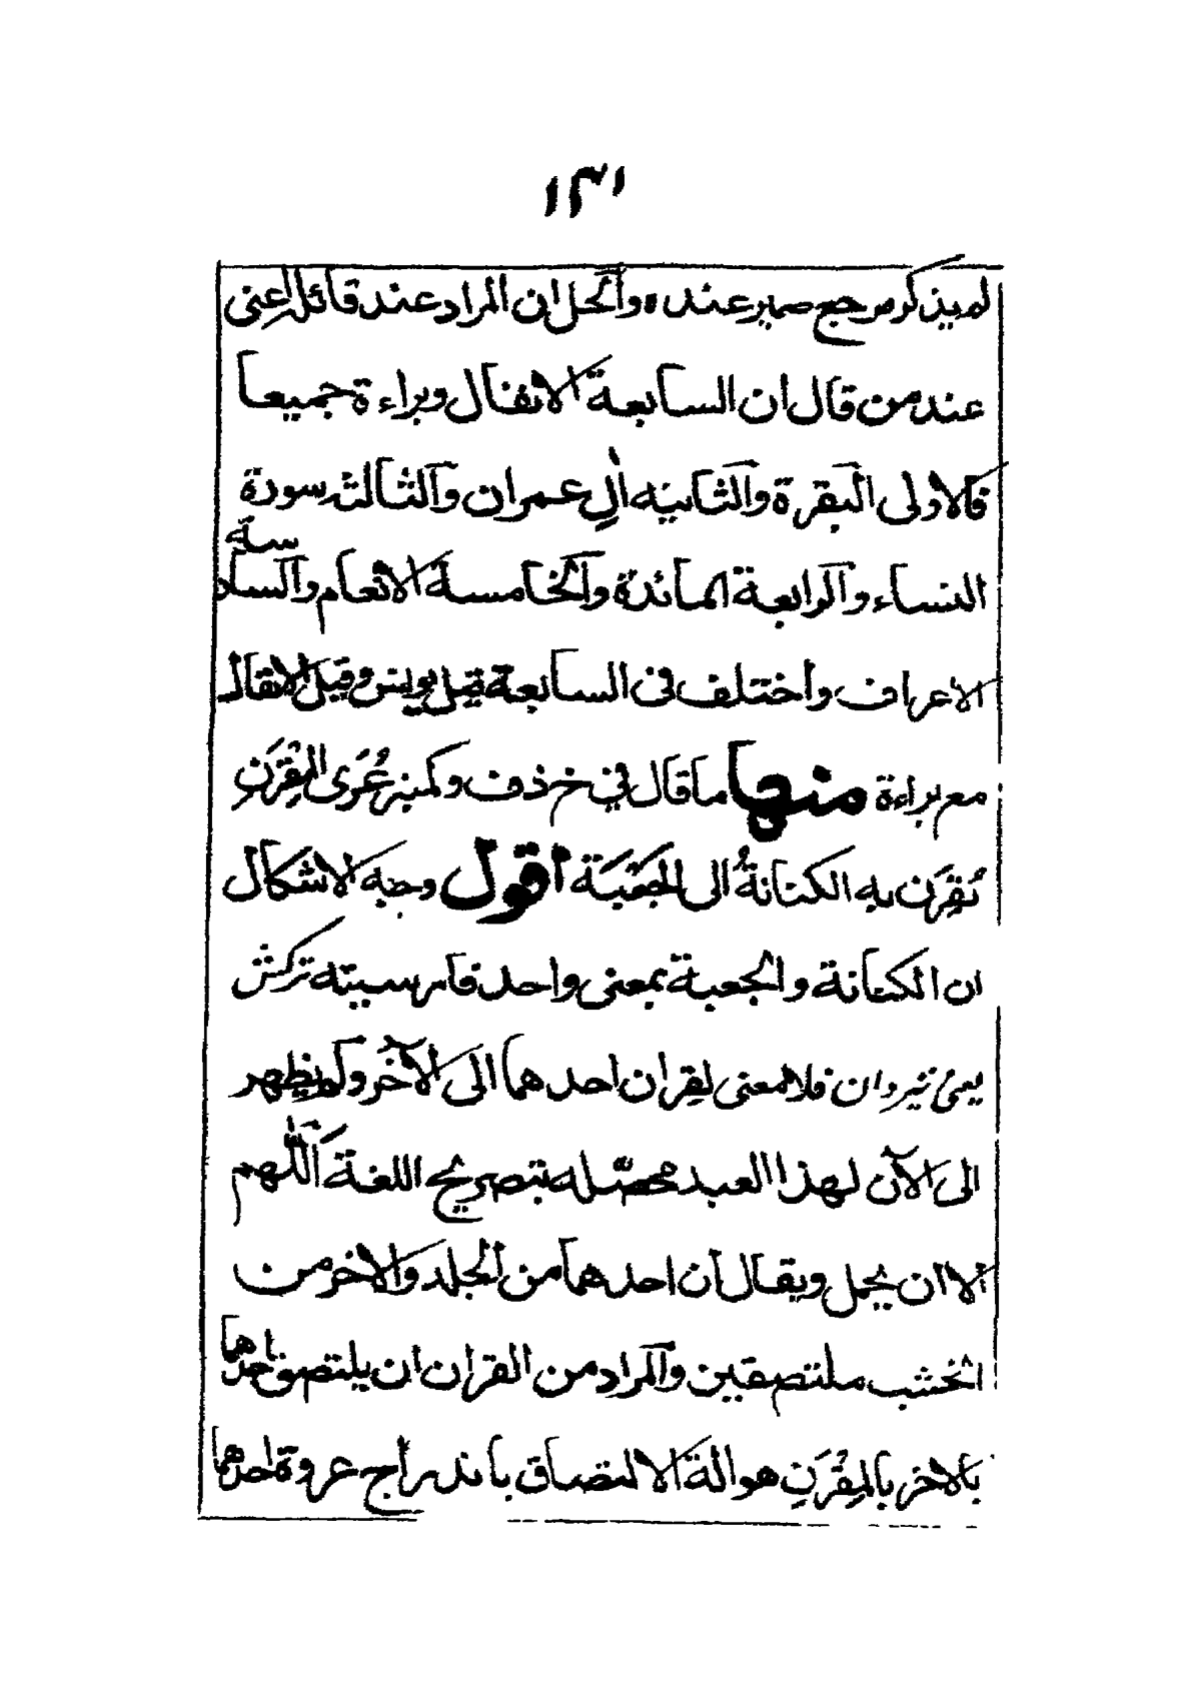 ١٣١
لم يذكر مرجع ضمير عنده والحل ان المراد عند قائله اعنى
عند من قال ان السابعة الانفال وبراءة جميعا
فالاولى البقرة والثانيه اٰلِ عمران والثالثه سورة
النساء والرابعة المائدة والخامسة الانعام والسادسة
الاعراف واختلف فى السابعة قيل يونس وقيل الانفال
مع براءة منها ما قال في خ ذ ف وكمنبر عُرَى المِقْرَنِ
تُقِرَن به الكنانةُ الى الجَعْبَة اقول وجه الاشكال
ان الكنانة والجعبة بمعنى واحد فارسيته تركش
يعنى تيردان فلا معنى لقِران احدهما الى الآخُر ولم يظهر
الى الآن لهذا العبد محصّله بتصريح اللغة اَللّٰهم
الا ان يحمل ويقال ان احدهما من الجلد والاخر من
الخشب ملتصقين والمراد من القران ان يلتصق احدهما
بالاخر بالمِقْرَنِ هو الة الالتصاق باندراج عروة احدهما